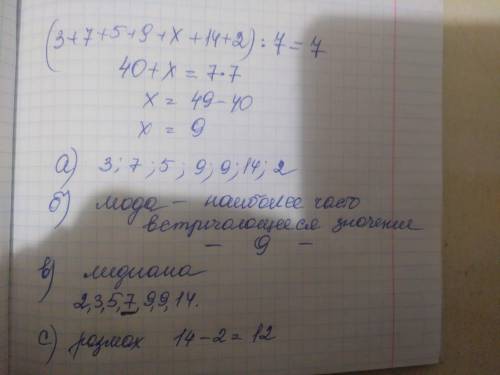 (3+7+5+9+x+14+2):7=7
40+x=7·7
x=49-40
x=9
а) 3; 7; 5; 9; 9; 14; 2
б) мода - наиболее часто
встричающееся значение
- 9 -
в) медиана
2,3,5,7,9,9,14.
с) размах 14-2=12